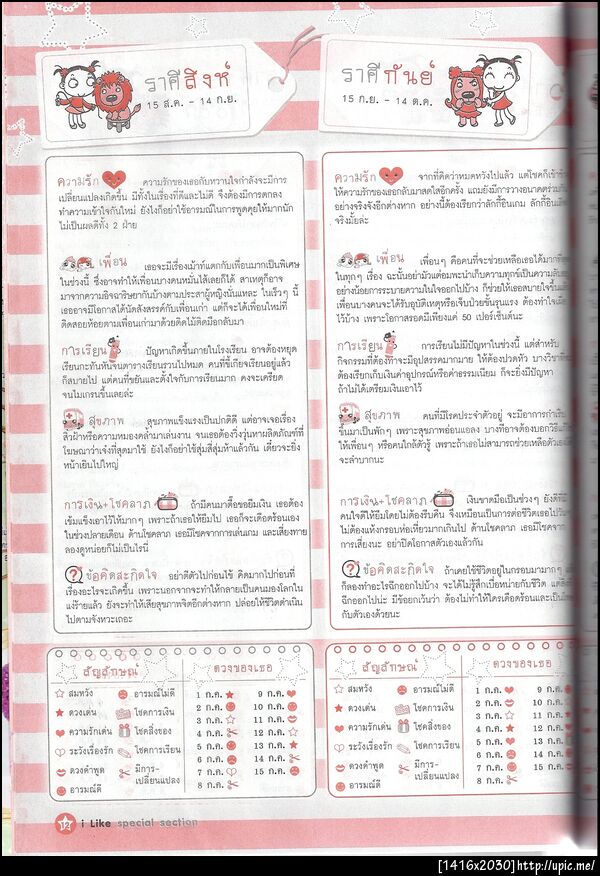 ราศีสิงห์
15 ส.ค. - 14 ก.ย.
ความรัก ความรักของเธอกับหวานใจกำลังจะมีการ
เปลี่ยนแปลงเกิดขึ้น มีทั้งในเรื่องที่ดีและไม่ดี จึงต้องมีการตกลง
ทำความเข้าใจกันใหม่ ยังไงก็อย่าใช้อารมณ์ในการพูดคุยให้มากนัก
ไม่เป็นผลดีทั้ง 2 ฝ่าย
เพื่อน เธอจะมีเรื่องเม้าท์แตกกับเพื่อนมากเป็นพิเศษ
ในช่วงนี้ ซึ่งอาจทำให้เพื่อนบางคนหมั่นไส้เลยก็ได้ สาเหตุก็อาจ
มาจากความอิจฉาริษยากันบ้างตามประสาผู้หญิงนั่นแหละ ในเร็วๆ นี้
เธออาจมีโอกาสได้นัดสังสรรค์กับเพื่อนเก่า แต่ก็จะได้เพื่อนใหม่ที่
ติดสอยห้อยตามเพื่อนเก่ามาด้วยติดไม้ติดมือกลับมา
การเรียน ปัญหาเกิดขึ้นภายในโรงเรียน อาจต้องหยุด
เรียนกะทันหันจนตารางเรียนรวนไปหมด คนที่ขี้เกียจเรียนอยู่แล้ว
ก็สบายไป แต่คนที่ขยันและตั้งใจกับการเรียนมาก คงจะเครียด
จนไมเกรนขึ้นเลยล่ะ
สุขภาพ สุขภาพแข็งแรงเป็นปกติดี แต่อาจเจอเรื่อง
สิวฝ้าหรือความหมองคล้ำมาเล่นงาน จนเธอต้องวิ่งวุ่นหาผลิตภัณฑ์ที่
โฆษณาว่าเจ๋งที่สุดมาใช้ ยังไงก็อย่าใช้สุ่มสี่สุ่มห้าแล้วกัน เดี๋ยวจะยิ่ง
หน้าเยินไปใหญ่
การเงิน+โชคลาภ ถ้ามีคนมาตื๊อขอยืมเงิน เธอต้อง
เข้มแข็งเอาไว้ให้มากๆ เพราะถ้าเธอให้ยืมไป เธอก็จะเดือดร้อนเอง
ในช่วงปลายเดือน ด้านโชคลาภ เธอมีโชคจากการเล่นเกม และเสี่ยงทาย
ลองดูหน่อยก็ไม่เป็นไรนี่
ข้อคิดสะกิดใจ อย่าตีตัวไปก่อนไข้ คิดมากไปก่อนที่
เรื่องอะไรจะเกิดขึ้น เพราะนอกจากจะทำให้กลายเป็นคนมองโลกใน
แง่ร้ายแล้ว ยังจะทำให้เสียสุขภาพจิตอีกต่างหาก ปล่อยให้ชีวิตดำเนิน
ไปตามจังหวะเถอะ
สัญลักษณ์ ดวงของเธอ
สมหวัง อารมณ์ไม่ดี 1 ก.ค. 9 ก.ค.
ดวงเด่น โชคการเงิน 2 ก.ค. 10 ก.ค.
ความรักเด่น โชคสิ่งของ 3 ก.ค. 11 ก.ค.
ระวังเรื่องรัก โชคการเรียน 4 ก.ค. 12 ก.ค.
ดวงคำพูด มีการ- 5 ก.ค. 13 ก.ค.
อารมณ์ดี เปลี่ยนแปลง 6 ก.ค. 14 ก.ค.
7 ก.ค. 15 ก.ค.
8 ก.ค.
12 i Like special section
ราศีกันย์
15 ก.ย. - 14 ต.ค.
ความรัก จากที่คิดว่าหมดหวังไปแล้ว แต่โชคก็เข้าข้าง
ให้ความรักของเธอกลับมาสดใสอีกครั้ง แถมยังมีการวางอนาคตร่วมกัน
อย่างจริงจังอีกต่างหาก อย่างนี้ต้องเรียกว่าลักกี้อินเกม ลักกี้อิน
จริงมั้ยล่ะ
เพื่อน เพื่อนๆ คือคนที่จะช่วยเหลือเธอได้มาก
ในทุกๆ เรื่อง ฉะนั้นอย่ามัวแต่อมพะนำเก็บความทุกข์เป็นความลับ
อย่างน้อยการระบายความในใจออกไปบ้าง ก็ช่วยให้เธอสบายใจขึ้น
เพื่อนบางคนจะได้รับอุบัติเหตุหรือเจ็บป่วยขั้นรุนแรง ต้องทำใจ
ไว้บ้าง เพราะโอกาสรอดมีเพียงแค่ 50 เปอร์เซ็นต์นะ
การเรียน การเรียนไม่มีปัญหาในช่วงนี้ แต่สำหรับ
กิจกรรมที่ต้องทำจะมีอุปสรรคมากมาย ให้ต้องปวดหัว บางวิชา
ต้องเรียกเก็บเงินค่าอุปกรณ์หรือค่าธรรมเนียม ก็จะยิ่งมีปัญหา
ถ้าไม่ได้เตรียมเงินเอาไว้
สุขภาพ คนที่มีโรคประจำตัวอยู่ จะมีอาการกำเริบ
ขึ้นมาเป็นพักๆ เพราะสุขภาพอ่อนแอลง บางทีอาจต้องบอกวิธี
ให้เพื่อนๆ หรือคนใกล้ตัวรู้ เพราะถ้าเธอไม่สามารถช่วยเหลือตัวเอง
จะลำบากนะ
การเงิน+โชคลาภ เงินขาดมือเป็นช่วงๆ ยังดีที่มี
คนใจดีให้ยืมโดยไม่ต้องรีบคืน จึงเหมือนเป็นการต่อชีวิตเธอไปวัน
ไม่ต้องแห้งกรอบห่อเหี่ยวมากเกินไป ด้านโชคลาภ เธอมีโชคจาก
การเสี่ยงนะ อย่าปิดโอกาสตัวเองแล้วกัน
ข้อคิดสะกิดใจ ถ้าเคยใช้ชีวิตอยู่ในกรอบมามากๆ
ก็ลองทำอะไรฉีกออกไปบ้าง จะได้ไม่รู้สึกเบื่อหน่ายกับชีวิต แต่
ฉีกออกไปน่ะ มีข้อยกเว้นว่า ต้องไม่ทำให้ใครเดือดร้อนและเป็น
กับตัวเองด้วยนะ
สัญลักษณ์ ดวงของเธอ
สมหวัง อารมณ์ไม่ดี 1 ก.ค. 9 ก.ค.
ดวงเด่น โชคการเงิน 2 ก.ค. 10 ก.ค.
ความรักเด่น โชคสิ่งของ 3 ก.ค. 11 ก.ค.
ระวังเรื่องรัก โชคการเรียน 4 ก.ค. 12 ก.ค.
ดวงคำพูด มีการ- 5 ก.ค. 13 ก.ค.
อารมณ์ดี เปลี่ยนแปลง 6 ก.ค. 14 ก.ค.
7 ก.ค. 15 ก.ค.
8 ก.ค.
[1416x2030]http://upic.me/